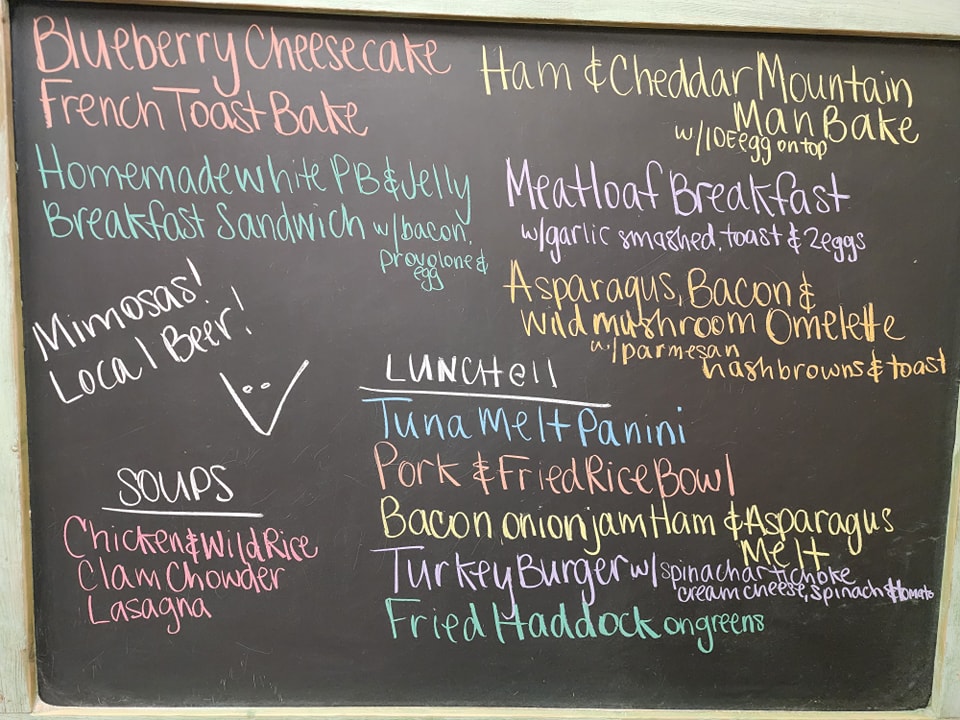 Blueberry Cheesecake
French Toast Bake
Homemade white PB & Jelly
Breakfast Sandwich w/bacon,
provolone &
egg
Mimosas!
Local Beer!
Ham & Cheddar Mountain
Man Bake
w/1 OE egg on top
Meatloaf Breakfast
w/garlic smashed, toast & 2 eggs
Asparagus, Bacon &
Wild mushroom Omelette
w/parmesan
hashbrowns & toast
SOUPS
Chicken & Wild Rice
Clam Chowder
Lasagna
LUNCH @ 11
Tuna Melt Panini
Pork & Fried Rice Bowl
Bacon onion jam Ham & Asparagus
Melt
Turkey Burger w/ spinach artichoke
cream cheese, spinach & tomato
Fried Haddock on greens